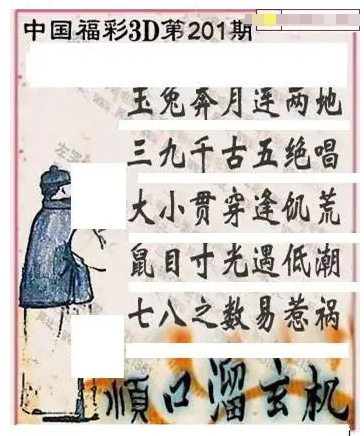 中国福彩3D第201期
玉兔奔月连两地
三九千古五绝唱
大小贯穿逢饥荒
鼠目寸光遇低潮
七八之数易惹祸
顺口溜玄机